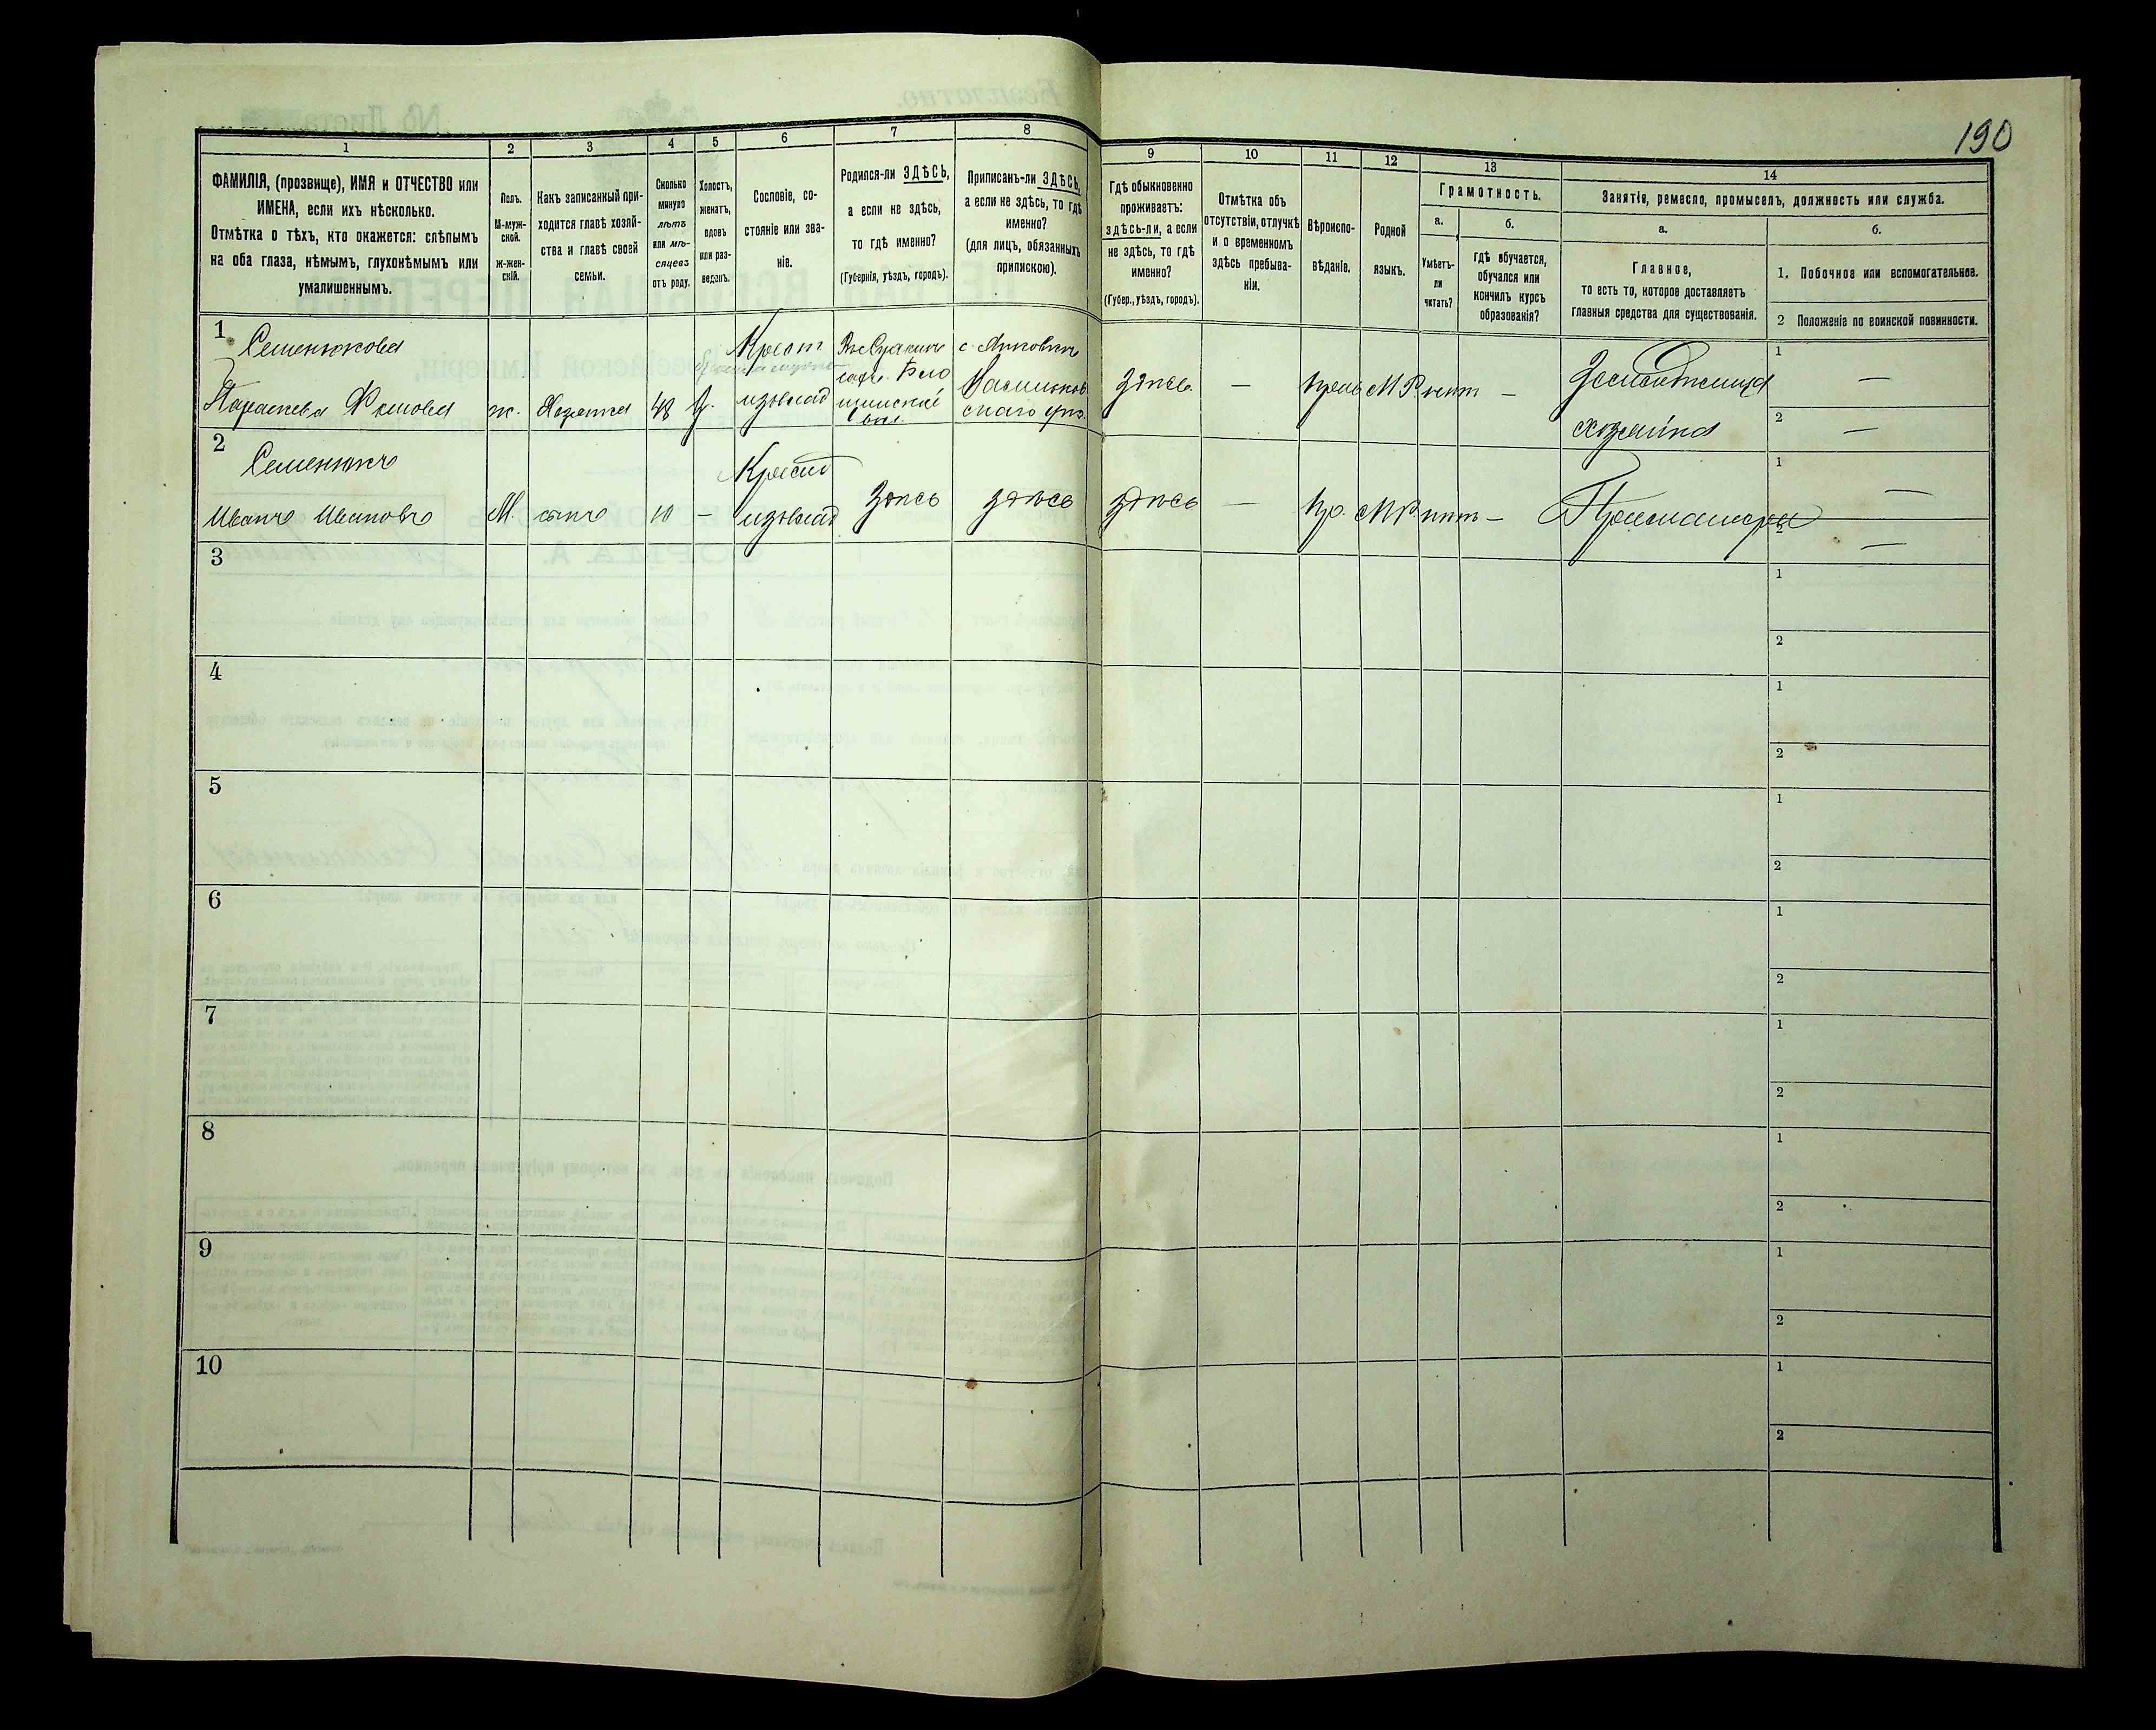 190
1
2
3
4
5
6
7
8
9
10
11
12
13
14
ФАМИЛІЯ, (прозвище), ИМЯ и ОТЧЕСТВО или
ИМЕНА, если ихъ нѣсколько.
Отмѣтка о тѣхъ, кто окажется: слѣпымъ
на оба глаза, нѣмымъ, глухонѣмымъ или
умалишеннымъ.
Полъ.
М-муж-
ской.
Ж-жен-
скій.
Какъ записанный при-
ходится главѣ хозяй-
ства и главѣ своей
семьи.
Сколько
минуло
лѣтъ
или мѣ-
сяцевъ
отъ роду.
Холостъ,
женатъ,
вдовъ
или раз-
веденъ.
Сословіе, со-
стояніе или зва-
ніе.
Родился-ли ЗДѢСЬ,
а если не здѣсь,
то гдѣ именно?
(Губернія, уѣздъ, городъ).
Приписанъ-ли ЗДѢСЬ,
а если не здѣсь, то гдѣ
именно?
(для лицъ, обязанныхъ
припискою).
Гдѣ обыкновенно
проживаетъ:
здѣсь-ли, а если
не здѣсь, то гдѣ
именно?
(Губер., уѣздъ, городъ).
Отмѣтка объ
отсутствіи, отлучкѣ
и о временномъ
здѣсь пребыва-
ніи.
Вѣроиспо-
вѣданіе.
Родной
языкъ.
Грамотность.
а.
Умѣетъ-
ли
читать?
б.
гдѣ обучается,
обучался или
кончилъ курсъ
образованія?
Занятія, ремесло, промыселъ, должность или служба.
а.
Главное,
то есть то, которое доставляетъ
главныя средства для существованія.
б.
1. Побочное или вспомогательное.
2 Положеніе по воинской повинности.
1
Семенюкова
Параскева
ж.
Хозяйка
48
в.
Крест
изъ влад
здѣсь
—
прав
М.Р.
нѣт
—
Земледѣлица
хозяйка
1 —
2 —
2
Семенюкъ
Иванъ Ивановъ
М.
сынъ
10
—
Крест
изъ влад
здѣсь
здѣсь
здѣсь
—
пр.
М.Р.
нѣт
—
При матери
1 —
2 —
3
1
2
4
1
2
5
1
2
6
1
2
7
1
2
8
1
2
9
1
2
10
1
2